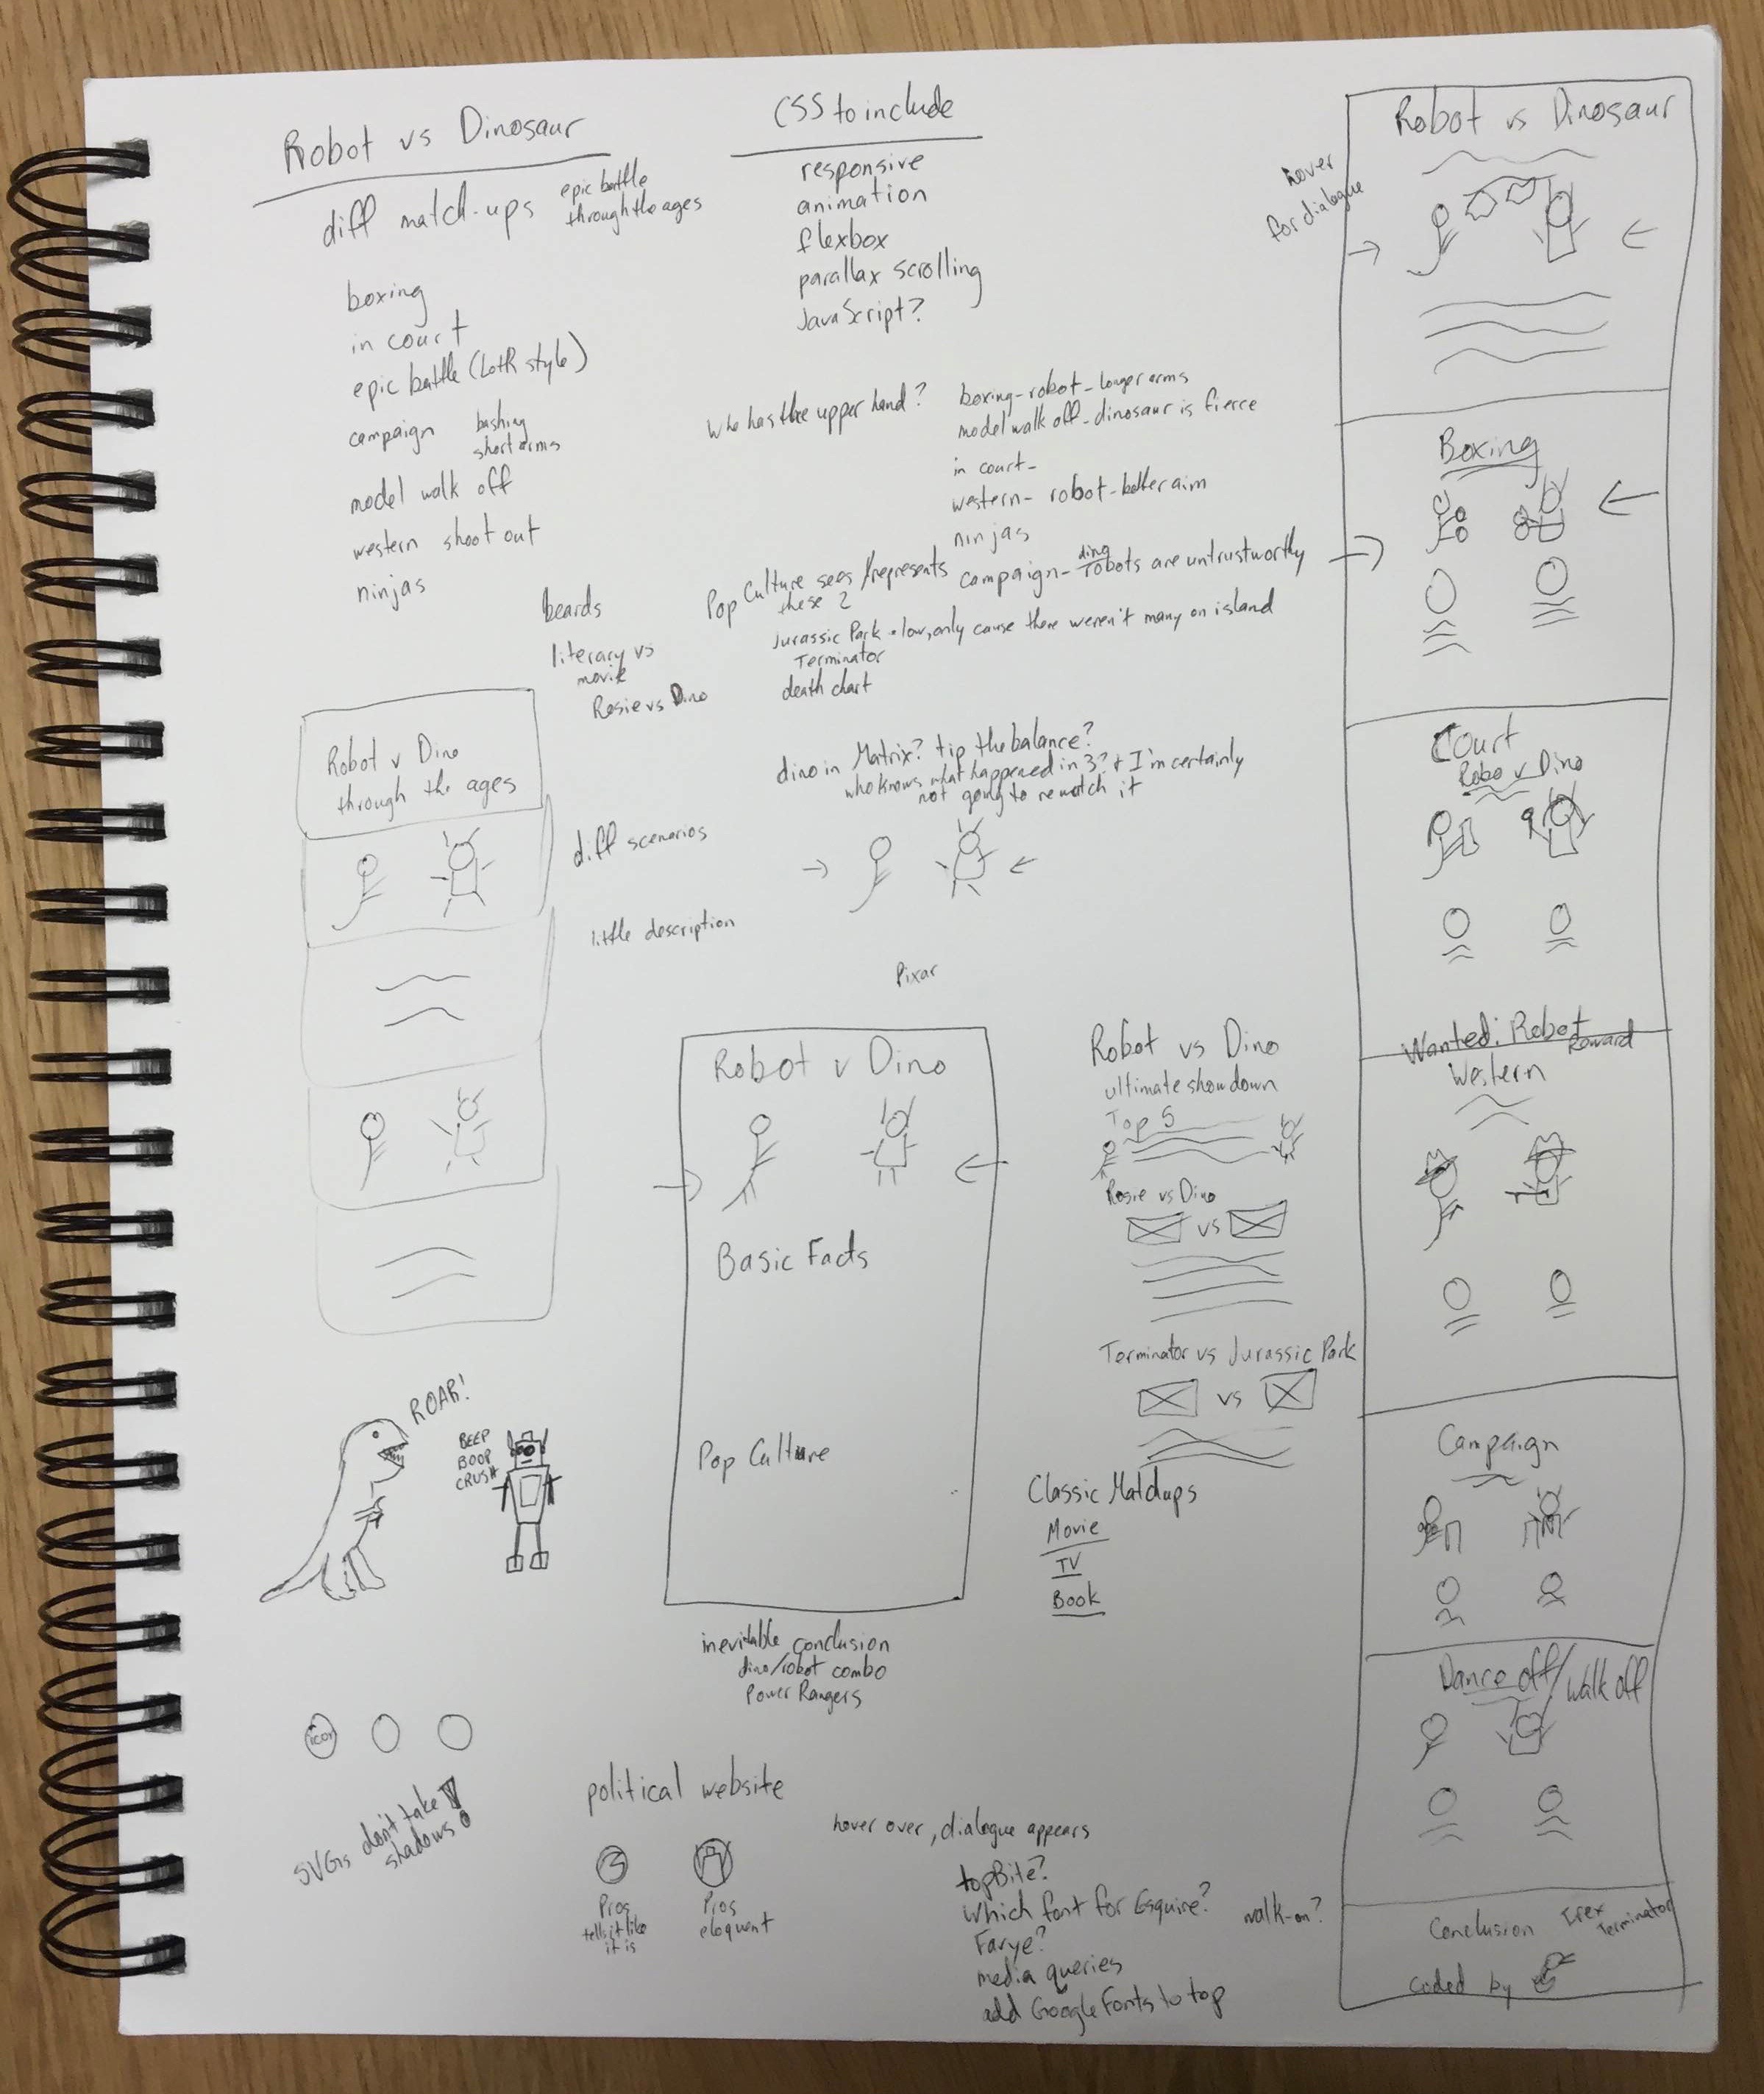 Robot vs Dinosaur
diff match-ups
epic battle
through the ages
boxing
in court
epic battle (LotR style)
campaign
bashing
short arms
model walk off
western shoot out
ninjas
beards
literary vs
movie
Rosie vs Dino
CSS to include
responsive
animation
flexbox
parallax scrolling
JavaScript?
Who has the upper hand?
boxing - robot - longer arms
model walk off - dinosaur is fierce
in court -
western - robot - better aim
ninjas
campaign - dino robots are untrustworthy
Pop Culture sees/represents
these 2
Jurassic Park - low, only cause there weren't many on island
Terminator
death chart
dino in Matrix? tip the balance?
who knows what happened in 3? + I'm certainly
not going to rewatch it
Robot v Dino
through the ages
diff scenarios
little description
Pixar
Robot v Dino
Basic Facts
Pop Culture
inevitable conclusion
dino/robot combo
Power Rangers
Robot vs Dino
ultimate showdown
Top 5
Rosie vs Dino
vs
Terminator vs Jurassic Park
vs
Classic Matchups
Movie
TV
Book
ROAR!
BEEP
BOOP
CRUSH
icon
SVGs don't take
shadows!
political website
Pros
tells it like
it is
Pros
eloquent
hover over, dialogue appears
topBite?
Which font for Esquire?
walk-on?
media queries
add Google Fonts to top
hover
for dialogue
Robot vs Dinosaur
Boxing
Court
Robo v Dino
Wanted: Robot
Reward
Western
Campaign
Dance off/walk off
Conclusion
Trex
Terminator
coded by